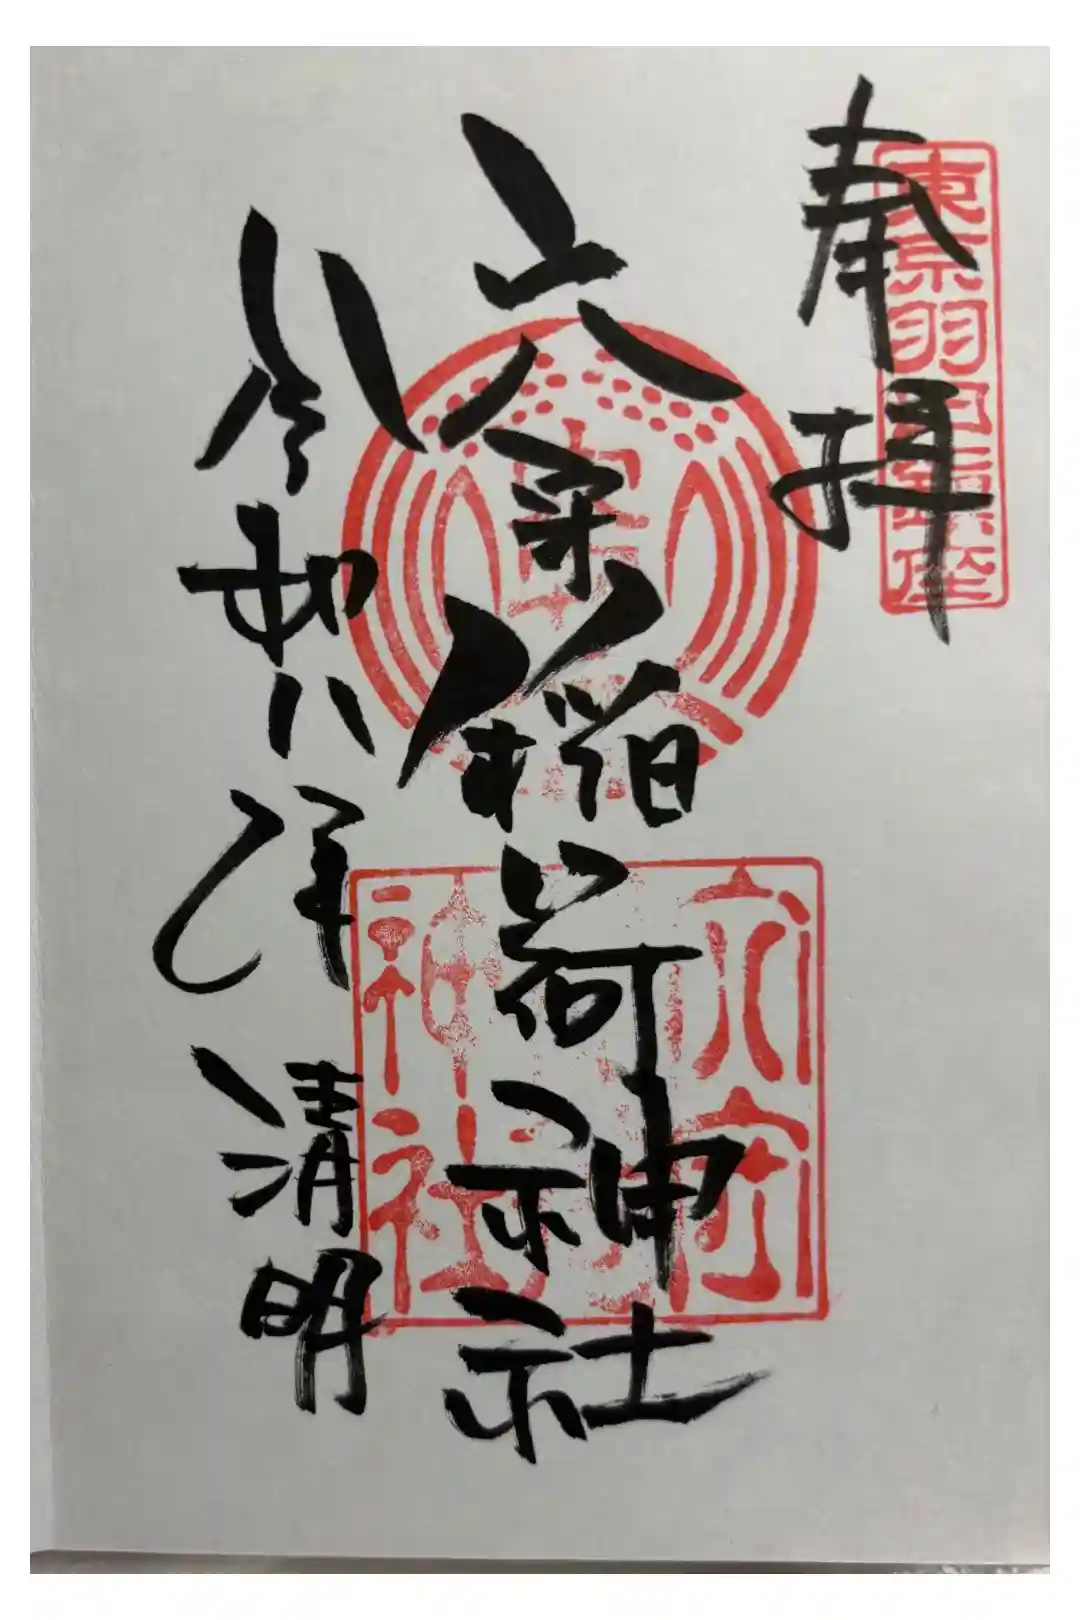 東京羽田鎮座
奉拝
穴守稲荷神社
穴守
神社
令和八年 清明